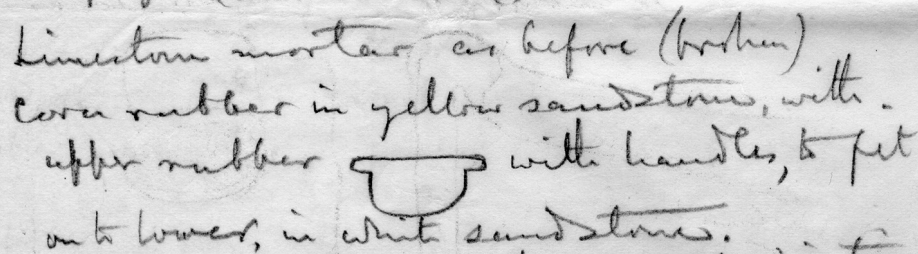 Limestone mortar as before (broken)
Corn rubber in yellow sandstone, with
upper rubber with handles, to fit
on to lower, in white sandstone.